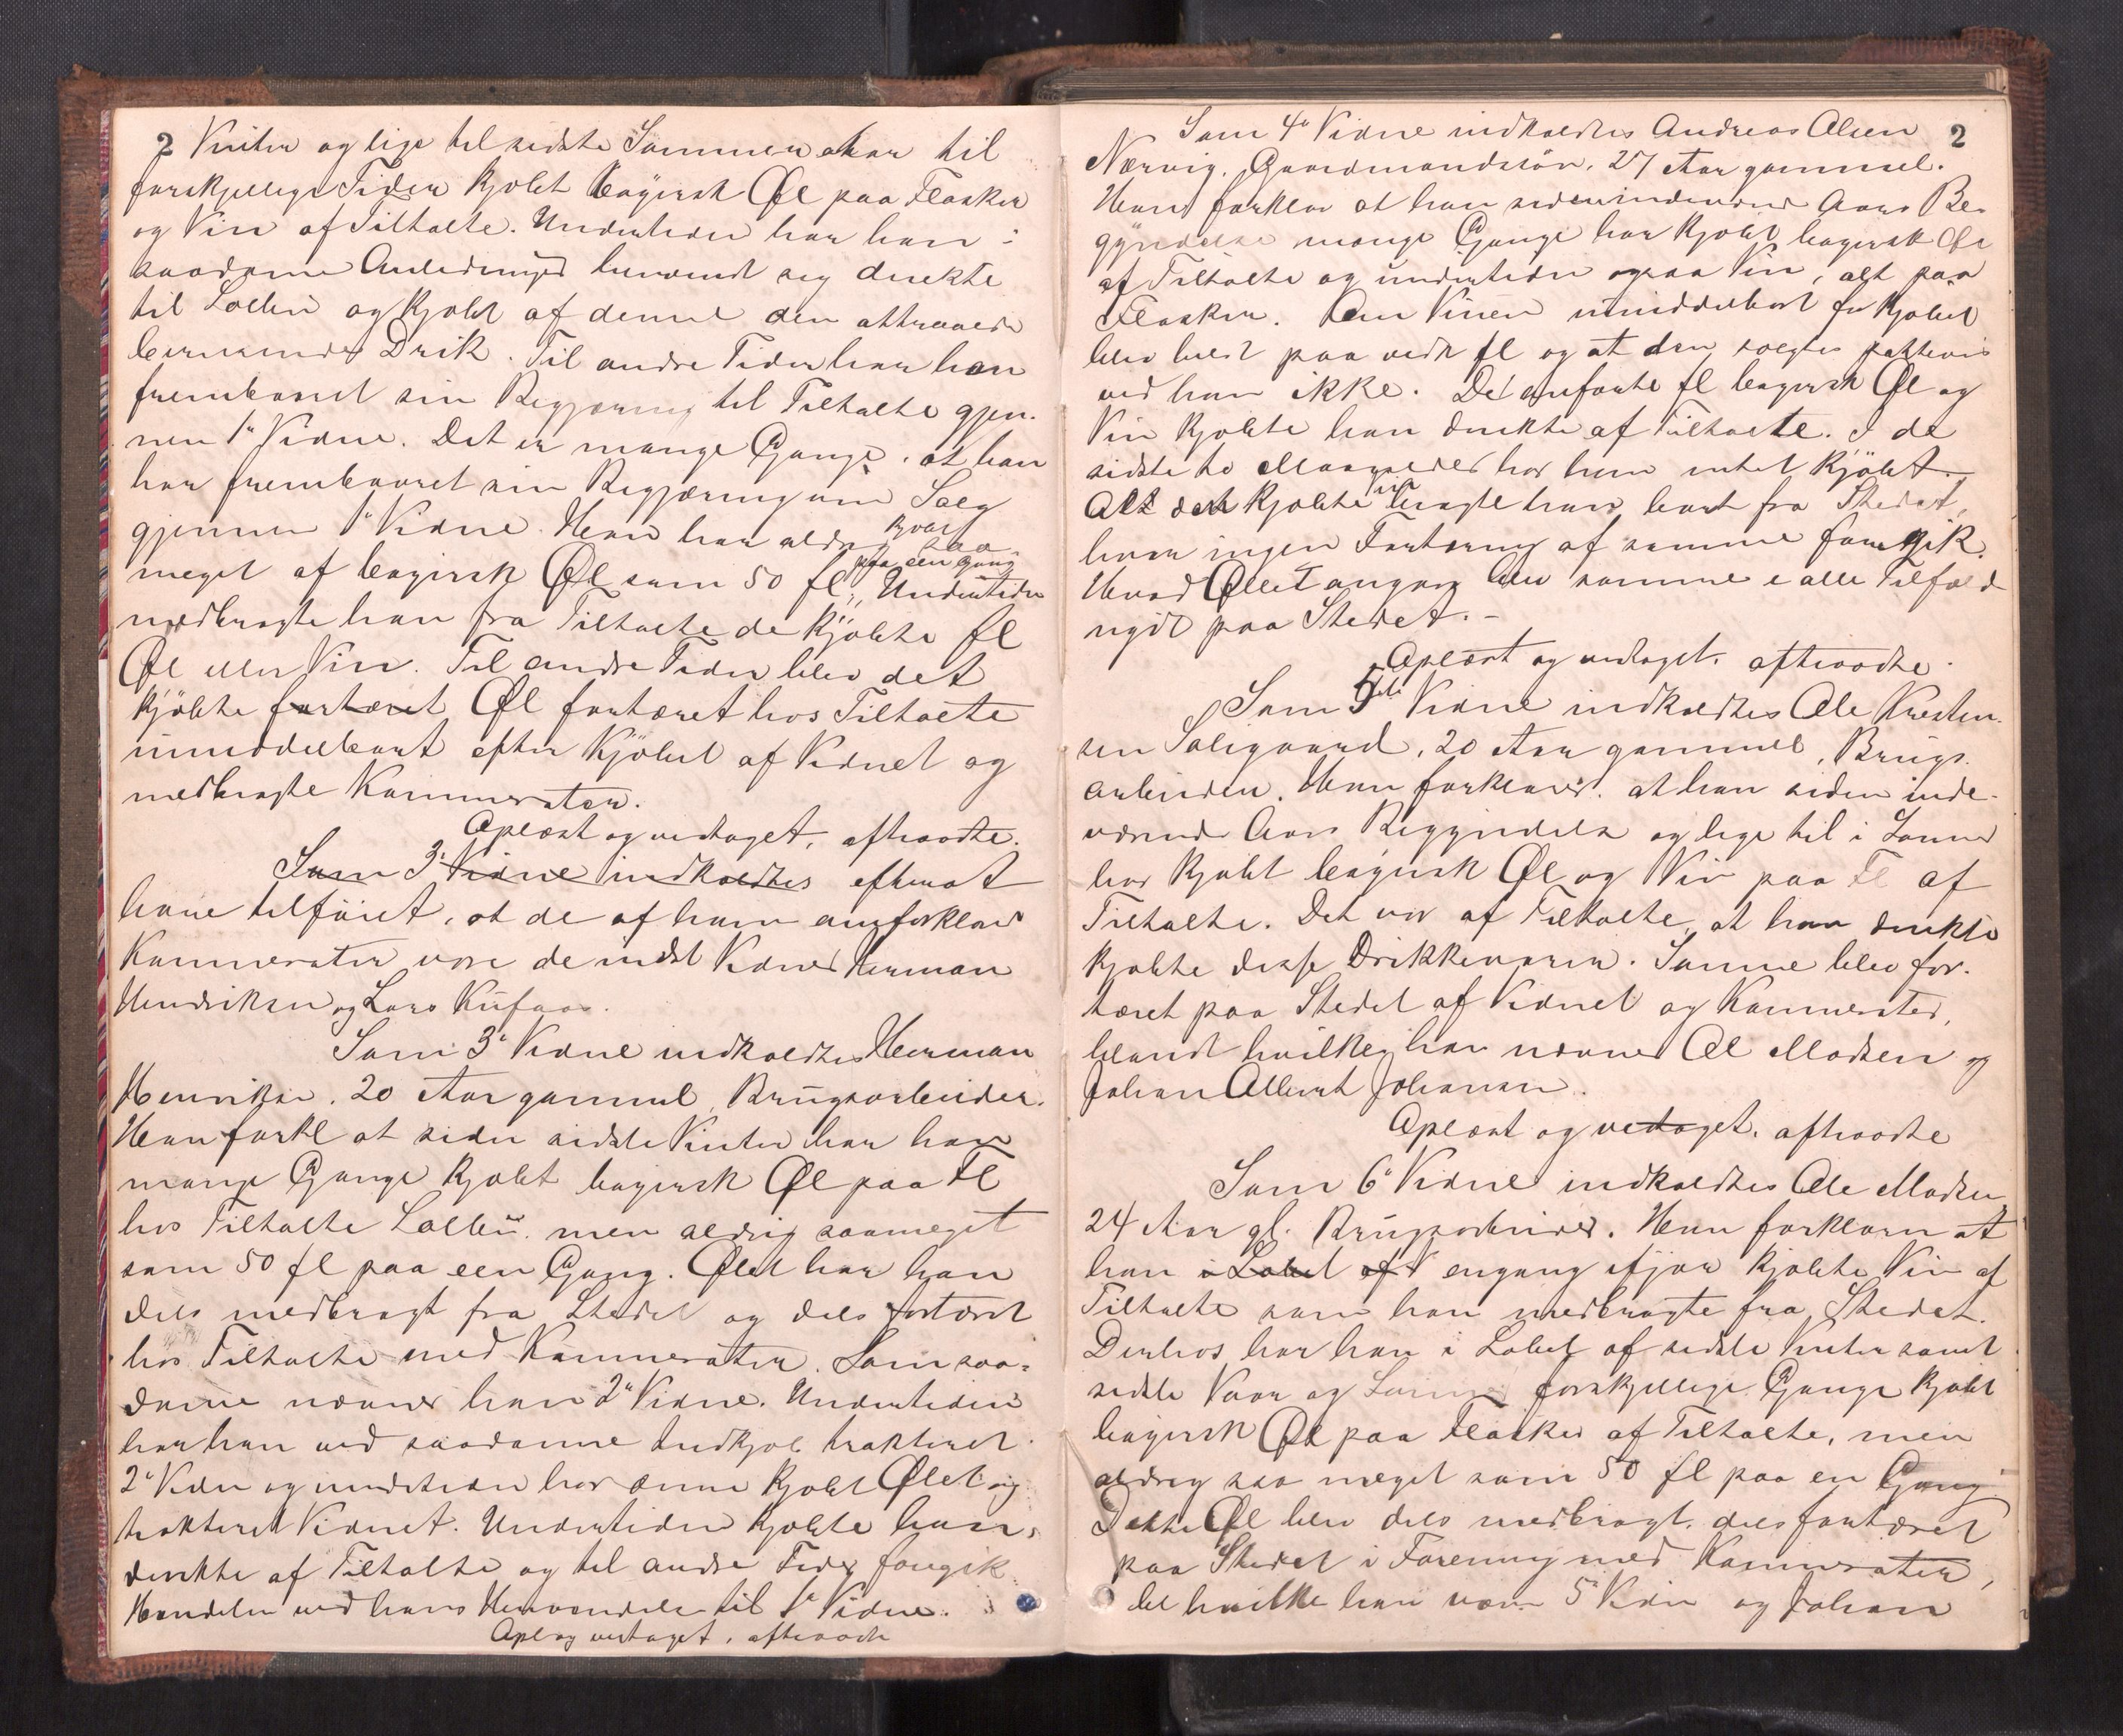 2 Vinter og lige til sidste Sommer har til
forskjellige Tider kjøbt bayersk Øl paa Flasker
og Vin af Tiltalte. Undertiden har han i
saadanne Anledninger henvendt sig direkte
til Løllin og kjøbt af denne den attraaede
berusende Drik. Til andre Tider har han
frembaaret sin Begjæring til Tiltalte gjen-
nem 1ᵗᵉ Vidne. Det er mange Gange, at han
har frembaaret sin Begjæring om Salg
gjennem 1ᵗᵉ Vidne. Han har aldrig
meget af bayersk Øl som 50 fl. paa een Gang Undertiden
medbragte han fra Tiltalte de kjøbte fl
Øl eller Vin. Til andre Tider blev det
kjøbte fortæret Øl fortæret hos Tiltalte
umiddelbart efter Kjøbet af Vidnet og
medbragte Kammerater.
Oplæst og vedtaget, aftraadte.
Som 3ᵈⁱᵉ Vidne indkaldtes efterat
have tilføiet, at de af ham omforklared
Kammerater vare de næst Vidner Herman
Hendriksen og Lars Kufaas.
Som 3ᵈⁱᵉ Vidne indkaldtes Herman
Henriksen, 20 Aar gammel, Brugsarbeider.
Han forkl at siden sidste Vinter har han
mange Gange kjøbt bayersk Øl paa Fl
hos Tiltalte Løllin, men aldrig saameget
som 50 fl paa een Gang. Øllet har han
dels medbragt fra Stedet og dels fortæret
hos Tiltalte med Kammerater. Som saa-
danne nævner han 2ᵈᵉᵗ Vidne. Undertiden
har han ved saadanne Indkjøb trakteret
2ᵈᵉᵗ Vidne og undertiden har denne kjøbt Øllet og
trakteret Vidnet. Undertiden kjøbte han
direkte af Tiltalte og til andre Tider foregik
Handelen ved hans Henvendelse til 1ᵗᵉ Vidne.
Opl og vedtaget, aftraadte
Som 4ᵈᵉ Vidne indkaldtes Andreas Olsen 2
Nærvig, Gaardmandssøn, 27 Aar gammel.
Han forklar at han siden indeværende Aars Be-
gyndelse mange Gange har kjøbt bayersk Øl
af Tiltalte og undertiden ogsaa Vin, alt paa
Flasker. Om Vinen umiddelbart før Kjøbet
blev hældt paa vedk fl og at den solgtes
ved han ikke. De anførte fl bayersk Øl og
Vin kjøbte han direkte af Tiltalte. I de
sidste to Maaneder har han intet kjøbt.
Alt den kjøbte Vin bragte han bort fra Stedet,
hvor ingen Fortæring af samme foregik.
Hvad Øllet angaar blev samme i alle Tilfælde
nydt paa Stedet.-
Oplæst og vedtaget. aftraadte.
Som 5ᵗᵉ Vidne indkaldtes Ole Kristen-
sen Soligaard, 20 Aar gammel, Brugs-
arbeider. Han forklarer, at han siden inde-
værende Aars Begyndelse og lige til i Sommer
har kjøbt bayersk Øl og Vin paa Fl af
Tiltalte. Det var af Tiltalte, at han direkte
kjøbte disse Drikkevarer. Samme blev for-
tæret paa Stedet af Vidnet og Kammerater,
blandt hvilke han nævner Ol Madsen og
Johan Albert Johansen.
Oplæst og vedtaget. aftraadte
Som 6ᵗᵉ Vidne indkaldtes Ole Madsen
24 Aar gl. Brugsarbeider. Han forklarer at
han i Løbet af V engang ifjor kjøbte Vin af
Tiltalte som han medbragte fra Stedet.
Derhos har han i Løbet af sidste Vinter samt
sidste Vaar og Sommer forskjellige Gange kjøbt
bayersk Øl paa Flasker af Tiltalte, men
aldrig saa meget som 50 fl paa en Gang
Dette Øl blev dels medbragt, dels fortæret
paa Stedet i Forening med Kammerater,
til hvilke han nævner 5ᵗᵉ Vidne og Johan